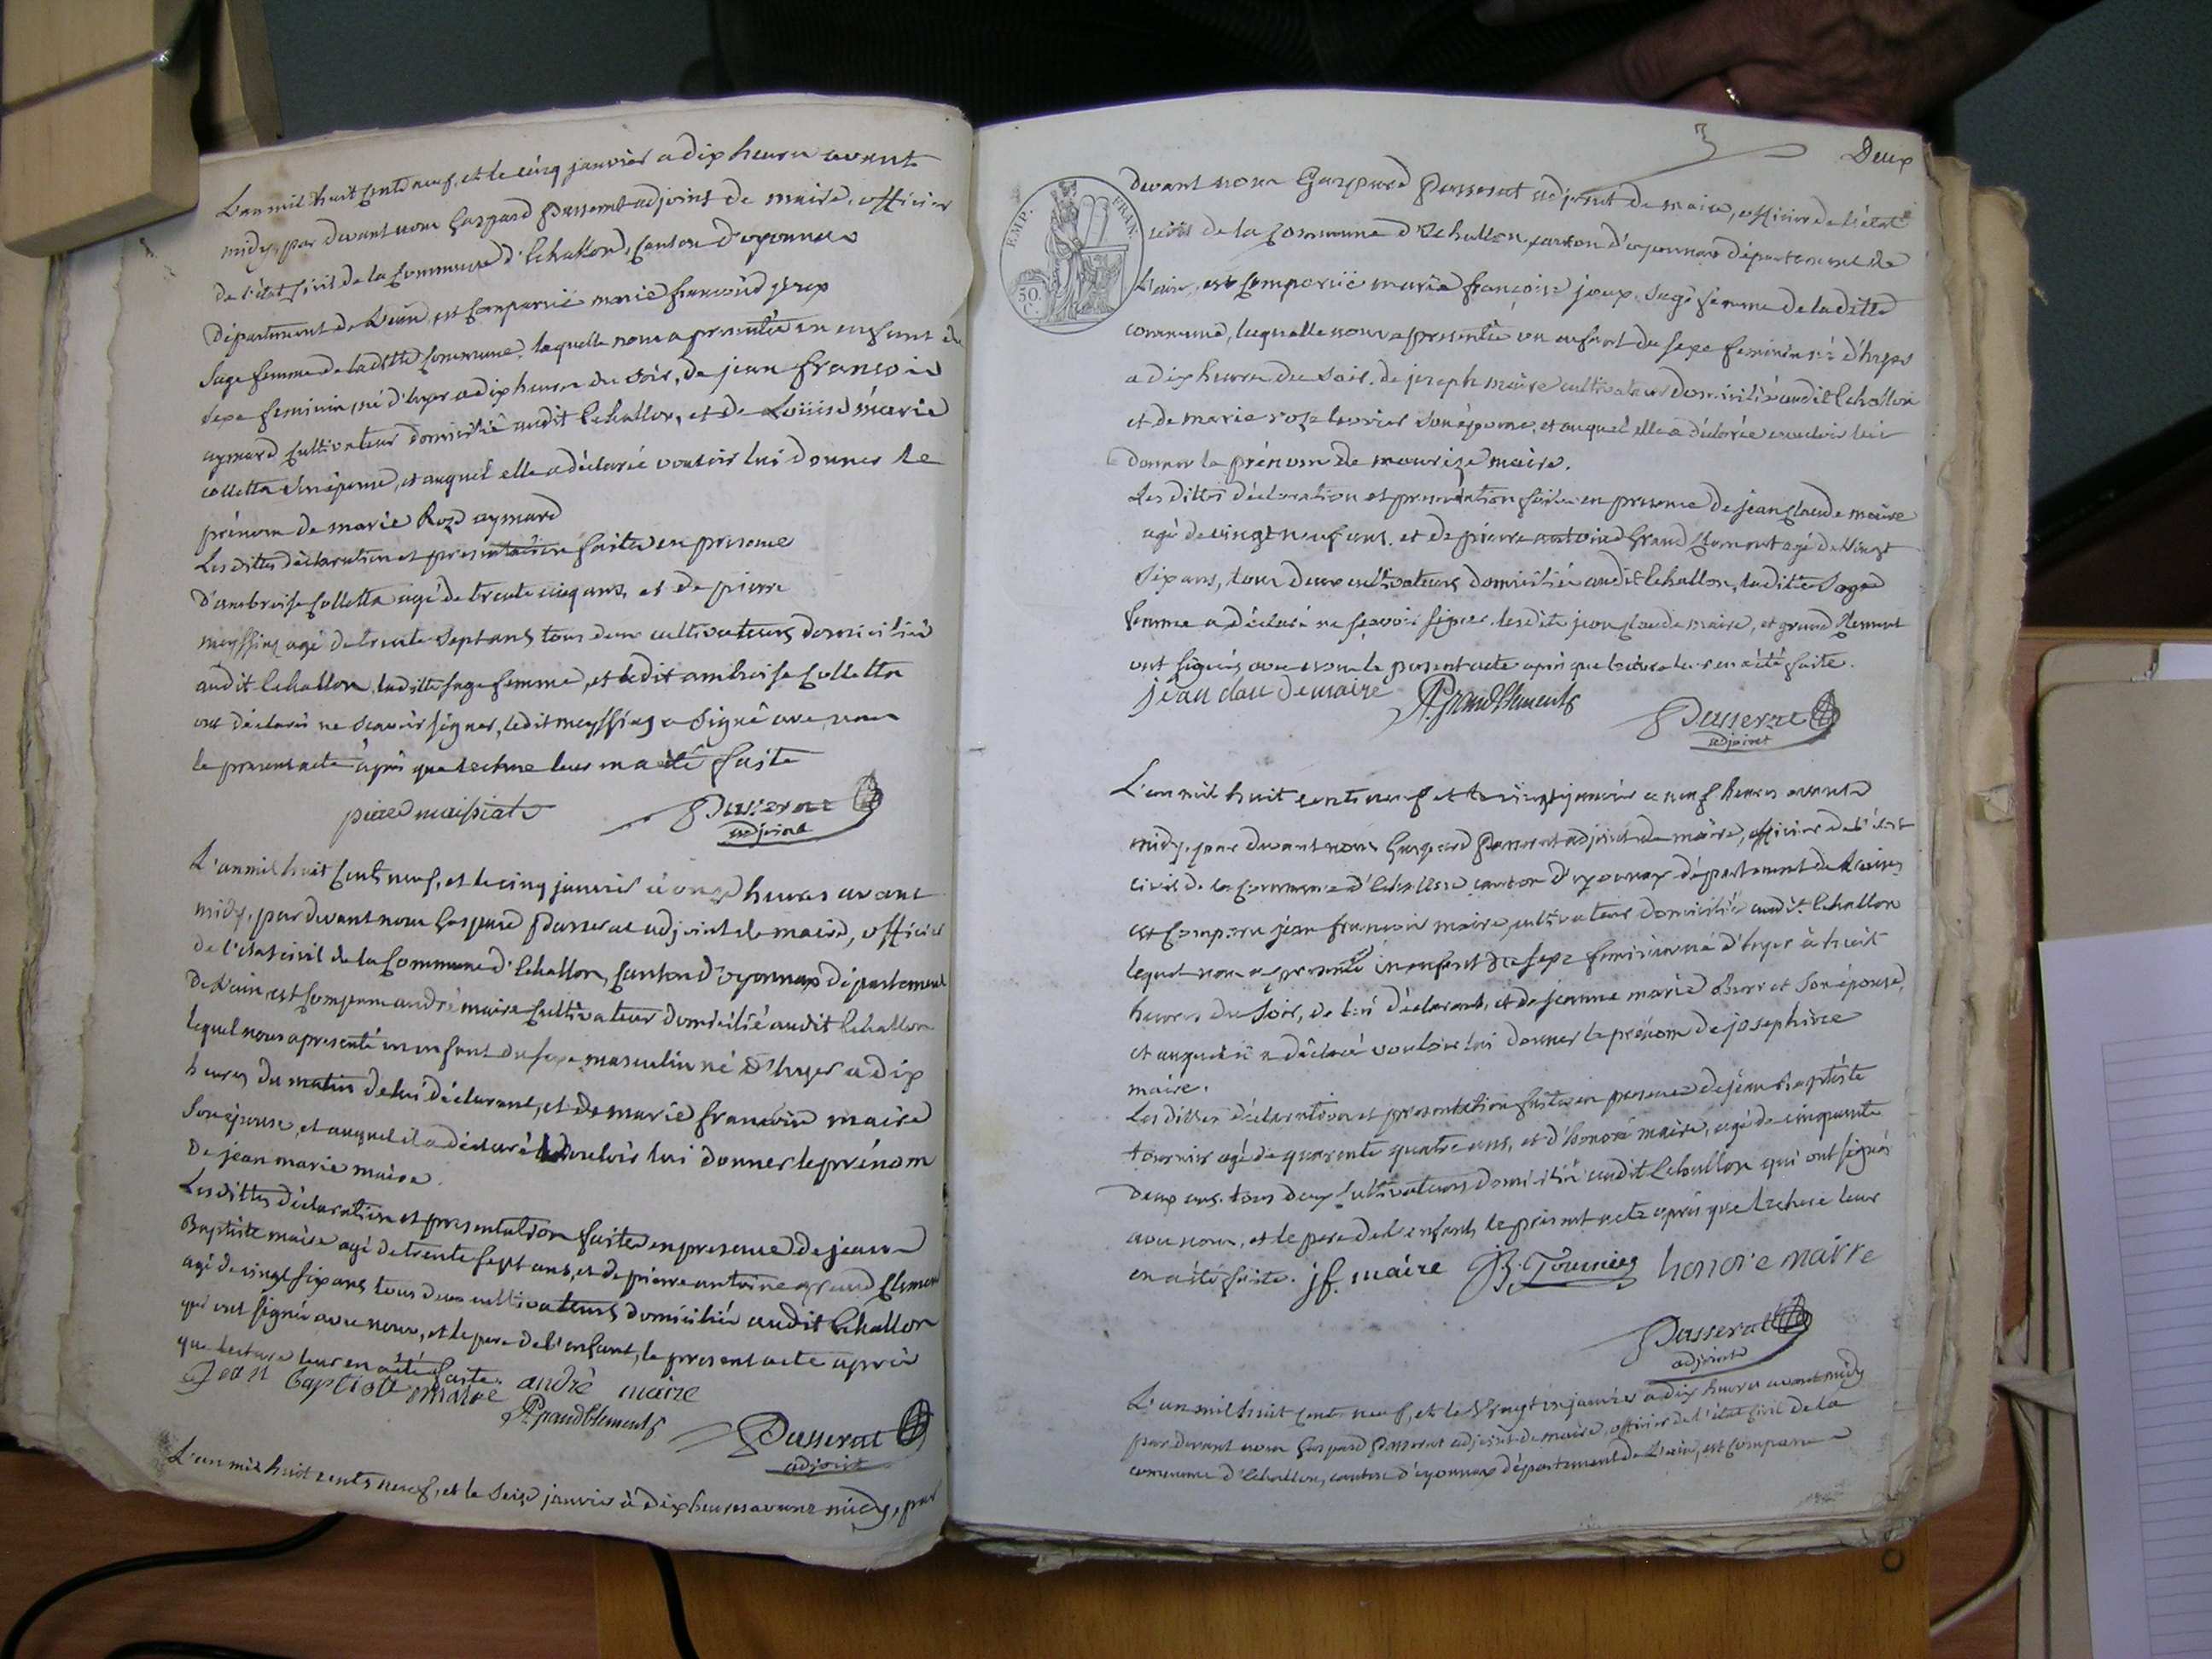 L'an mil huit cents neuf, et le cinq janvier a dix heures avant
midy, par devant nous Gaspard Passerat adjoint de maire, officier
de l'état civil de la commune d'Echallon, canton d'oyonnax
département de L'ain, est comparüe marie francoise joux
sage femme de laditte commune, laquelle nous a presentée un enfant du
sexe feminin, né d'hyer a dix heures du soir, de jean francois
aymard cultivateur domicilié audit Echallon, et de Loüise marie
colletta son épouse, et auquel elle a déclarée vouloir lui donner le
prénom de marie Roze aymard
Les dittes déclaration et presentation faites en presence
d'ambroise Colletta agé de trente cinq ans, et de pierre
agé de trente sept ans, tous deux cultivateurs domiciliés
audit Echallon, laditte sage femme, et ledit ambroise Colletta
ont déclarés ne scavoir signer, ledit a signé avec nous
le present acte après que lecture leur en a été faite
Passerat
adjoint
L'an mil huit cents neuf, et le cinq janvier à onze heures avant
midy, par devant nous Gaspard Passerat adjoint de maire, officier
de l'état civil de la Commune d'Echallon, Canton d'oyonnax département
de L'ain, est comparu andré maire Cultivateur domicilié audit Echallon
lequel nous a presenté un enfant du sexe masculin né d'hyer a dix
heures du matin de lui déclarant, et de marie francoise maire
son épouse, et auquel il a déclaré vouloir lui donner le prénom
de jean marie maire.
Les dittes déclaration et presentation faites en presence de jean
Baptiste maire agé de trente sept ans, et de pierre antoine grand Clement
agé de vingt six ans tous deux cultivateurs domiciliés audit Echallon
qui ont signés avec nous, et le pere de l'enfant, le present acte après
que lecture leur en a été faite.
Jean baptiste maire andré maire
P. A. grandClement
Passerat
adjoint
L'an mil huit cents neuf, et le seize janvier à dix heures avant midy, par
Deux
devant nous Gaspard Passerat adjoint de maire, officier de l'état
civil de la Commune d'Echallon, canton d'oyonnax département de
L'ain, est comparüe marie françoise joux sage femme de laditte
commune, laquelle nous a presentée un enfant du sexe feminin né d'hyer
a dix heures du soir, de joseph maire cultivateur domicilié audit Echallon
et de marie roze son épouse, et auquel elle a déclarée vouloir lui
donner le prénom de maurize maire.
Les dittes déclaration et presentation faites en presence de jean Claude maire
agé de vingt neuf ans, et de pierre antoine Grand Clement agé de vingt
six ans, tous deux cultivateurs domiciliés audit Echallon, laditte sage
femme a déclaré ne scavoir signer, lesdits jean Claude maire, et grand Clement
ont signés avec nous le present acte après que lecture leur en a été faite.
jean claude maire P. A. grandClement
Passerat
adjoint
EMP. FRAN.
50. C.
L'an mil huit cents neuf et le janvier a neuf heures avant
midy, par devant nous Gaspard Passerat adjoint de maire, officier de l'état
civil de la commune d'Echallon canton d'oyonnax département de L'ain,
est comparu jean francois maire, cultivateur domicilié audit Echallon
lequel nous a presenté un enfant du sexe feminin né d'hyer à huit
heures du soir, de lui déclarant, et de jeanne marie son épouse,
et auquel il a déclaré vouloir lui donner le prénom de josephine
maire.
Les dittes déclaration et presentation faites en presence de jean Baptiste
tournier agé de quarente quatre ans, et d'honoré maire, agé de cinquante
deux ans, tous deux Cultivateurs domiciliés audit Echallon qui ont signés
avec nous, et le pere de l'enfant le present acte après que lecture leur
en a été faite. jf. maire JB. Tournier honoré maire
Passerat
adjoint
L'an mil huit cents neuf, et le janvier a dix heures avant midy
par devant nous Gaspard Passerat adjoint de maire, officier de l'état civil de la
commune d'Echallon, canton d'oyonnax département de L'ain, est comparu